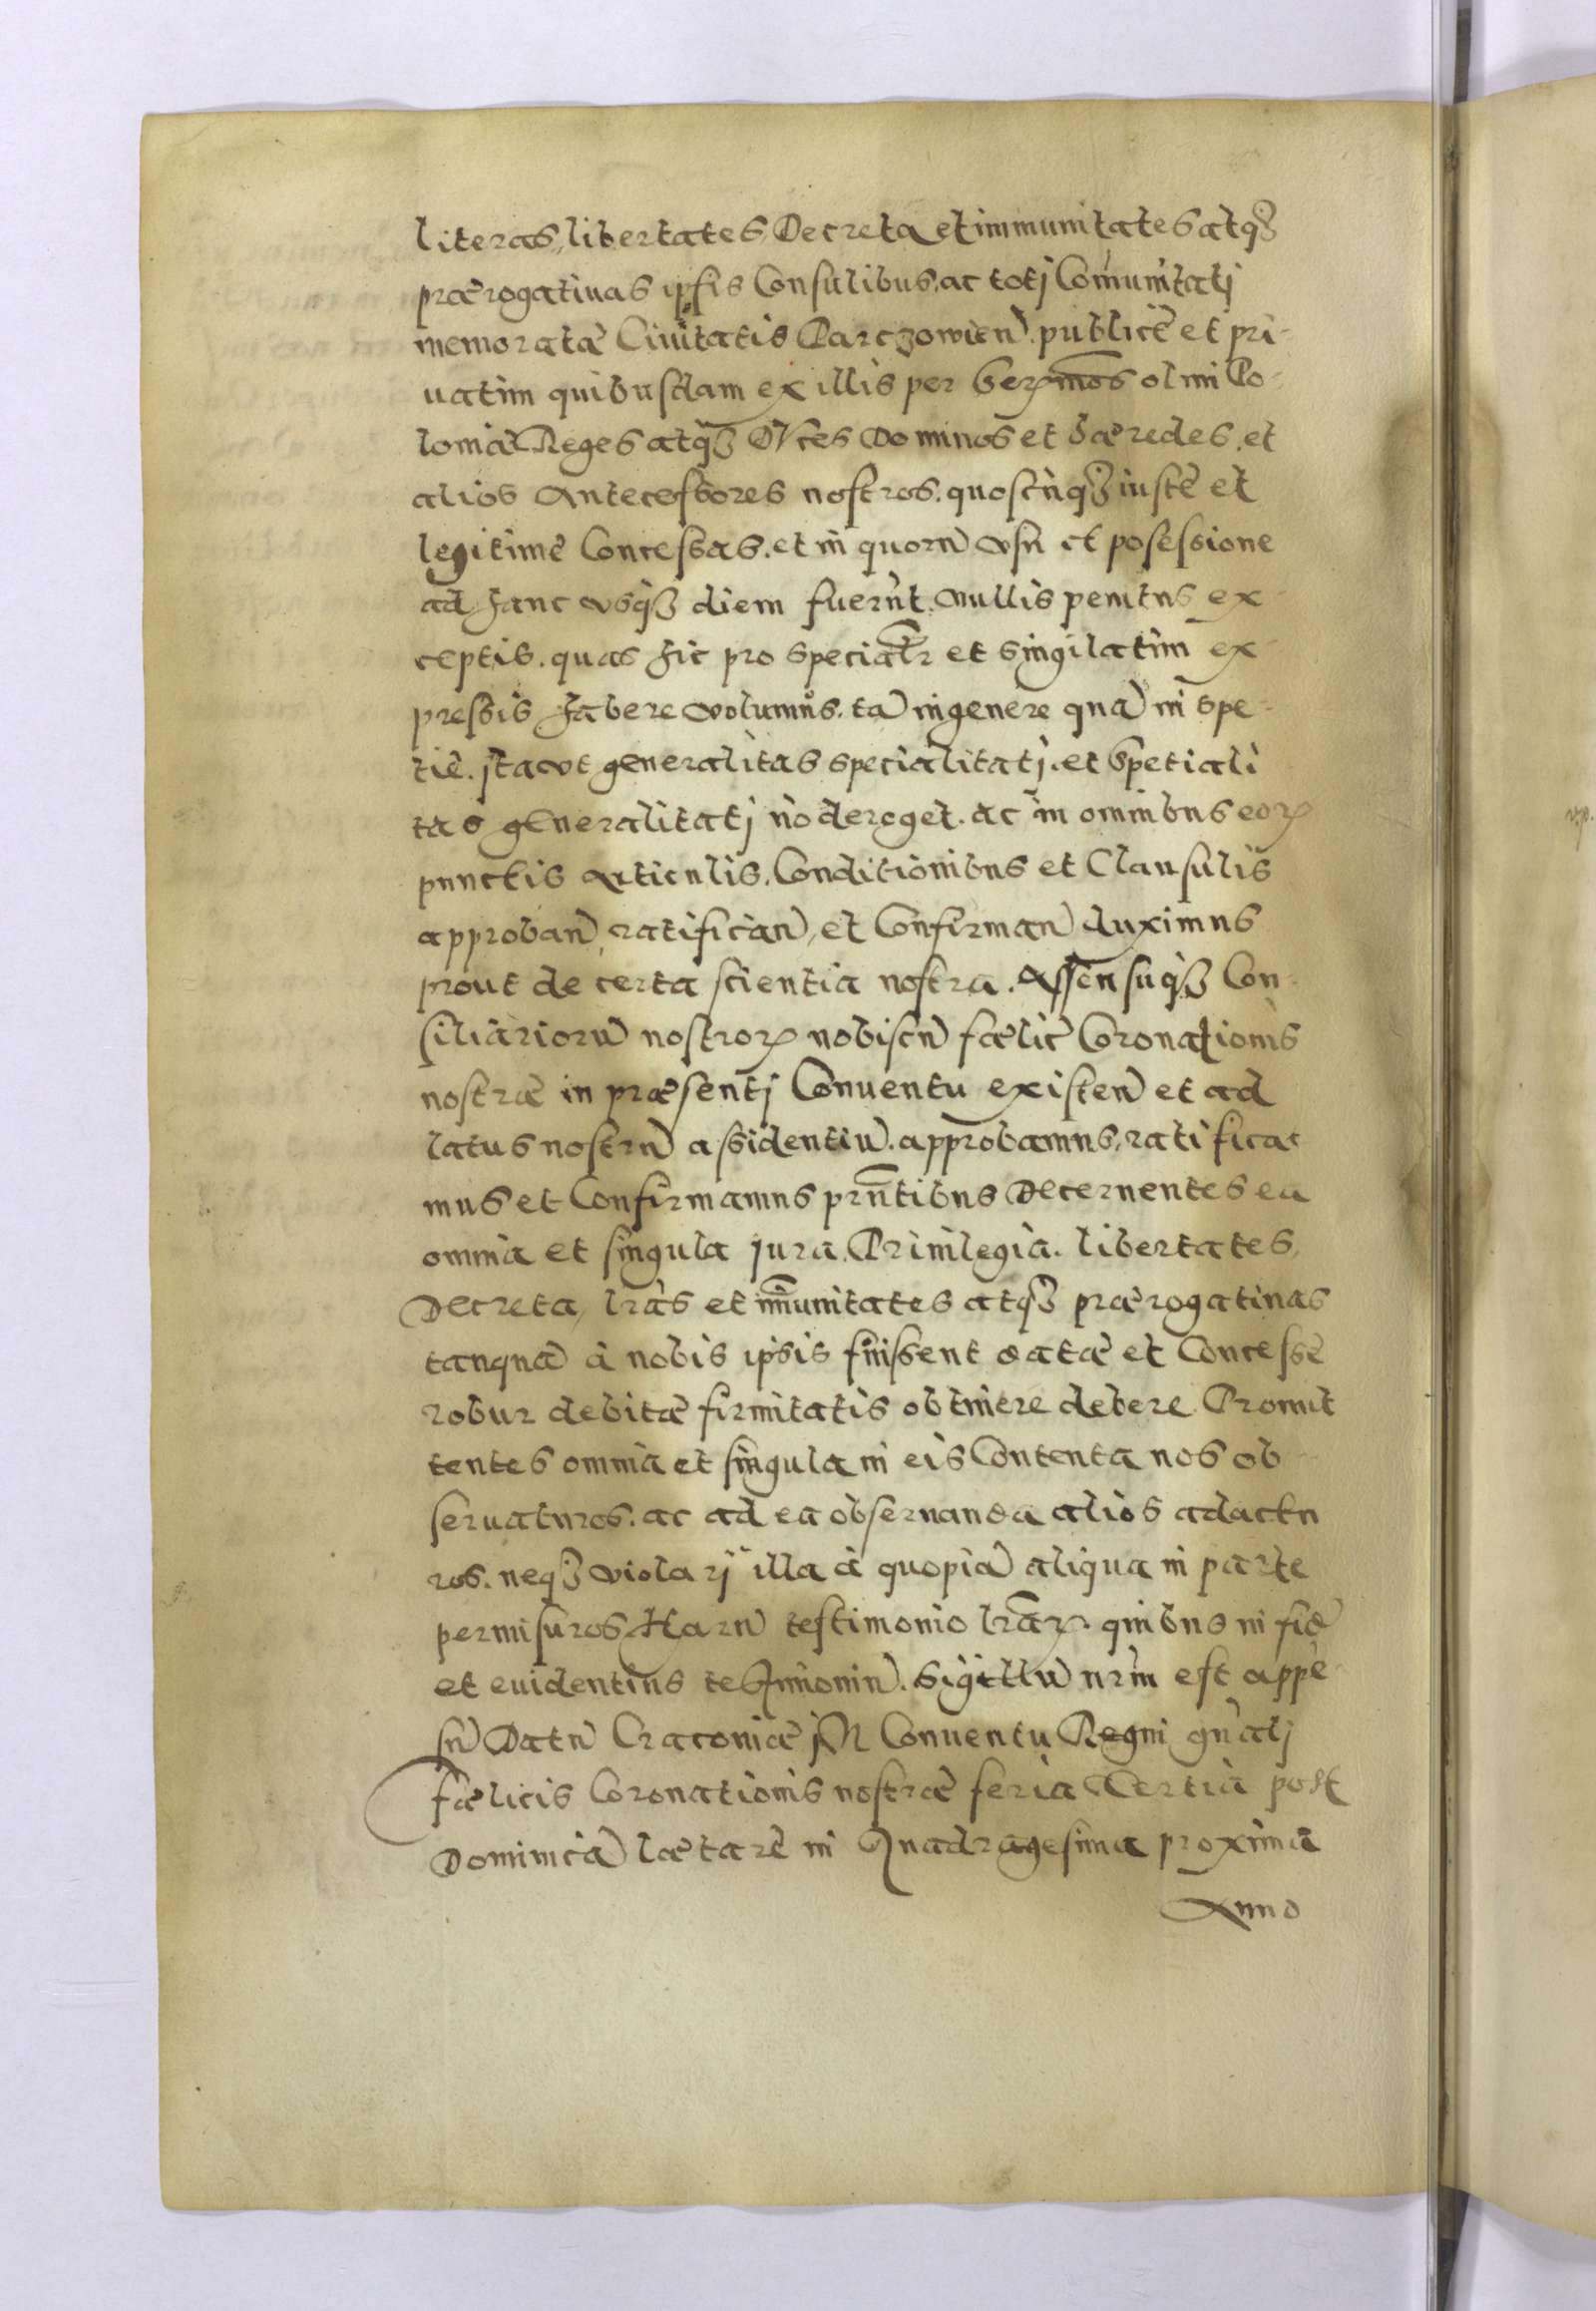 literas, libertates, Decreta et immunitates atq₃
prærogativas ipsis Consulibus, ac totj Com̄unitatj
memoratæ Civitatis Parczowien̄. publicè et pri-
vatim quibusdam ex illis per Ser̄mos olim Po-
loniæ Reges atq₃ Dvces Dominos et hæredes, et
alios Antecessores nostros. quoscūq₃ iustè et
legitimè Concessas. et in quorū vsū et posessione
ad hanc vsq₃ diem fuerūt. Nullis penitus ex-
ceptis. quas hic pro specialr̄ et singilatim ex-
pressis habere volumus. tā in genere quā in spe-
tie. jta vt generalitas specialitatj. et spetiali
tas generalitatj nō deroget. ac in omnibus eorꝝ
punctis articulis, Conditionibus et Clausulis
approban̄, ratifican̄, et Confirman̄ duximus
prout de certa scientia nostra. Assensuq₃ Con-
siliariorū nostrorꝝ nobiscū fælic̄ Coronationis
nostræ in præsentj Conuentu existen̄ et ad
latus nostrū assidentiū. approbamus, ratifica-
mus et Confirmamus prn̄tibus Decernentes ea
omnia et singula jura, Priuilegia. libertates,
Decreta, lr̄as et im̄unitates atq₃ prærogatiuas
tanquā à nobis ipsis fuissent datæ et Concessè
robur debitæ firmitatis obtinere debere. Promit
tentes omnia et singula in eis Contenta nos ob-
seruaturos. ac ad ea obseruanda alios adactu
ros. neq₃ violarj illa à quopiā aliqua in parte
permisuros Harū testimonio lr̄arꝝ. quibus in fidē
et euidentius testimoniū. Sigillū nr̄m est appē-
sū Datū Cracouiæ jN Conuentu Regni gn̄alj
fælicis Coronationis nostræ feria Tertia post
Dominicā lætarè in Quadragesima proxima
Anno